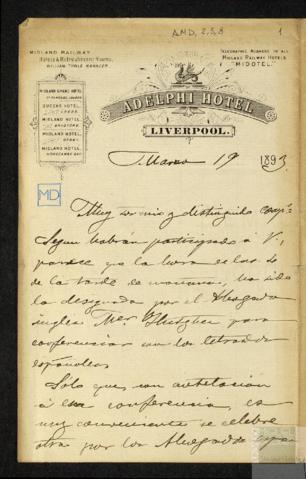 A.M.D, 2.5.8
1
MIDLAND RAILWAY
Hotels & Refreshment Rooms.
WILLIAM TOWLE MANAGER.
TELEGRAPHIC ADDRESS OF ALL
MIDLAND RAILWAY HOTELS
"MIDOTEL."
MIDLAND GRAND HOTEL
ST PANCRAS, LONDON
QUEENS HOTEL,
LEEDS.
MIDLAND HOTEL,
BRADFORD.
MIDLAND HOTEL,
DERBY.
MIDLAND HOTEL,
MORECAMBE BAY.
ADELPHI HOTEL
LIVERPOOL.
Marzo 19 1893.
MD
Muy Sr. mio y distinguido
Segun habrán participado á V,
parece que la hora es las 4
de la tarde de mañana, ha sido
la designada por el Abogado
inglés Mr. para
conferenciar con los letrados
españoles.
Sólo que, con antelacion
á esa conferencia, es
muy conveniente se celebre
otra por los Abogados